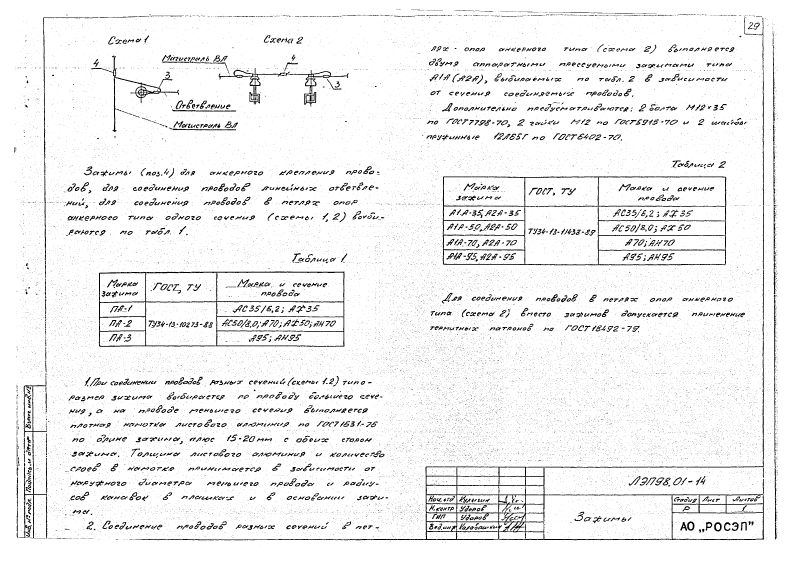 29
Схема 1
Схема 2
Магистраль ВЛ
4
3
Ответвление
Магистраль ВЛ
4
3
Зажимы (поз.4) для анкерного крепления прово-
дов, для соединения проводов линейных ответвле-
ний, для соединения проводов в петлях опор
анкерного типа одного сечения (схемы 1,2) выби-
раются по табл. 1.
Таблица 1
Марка зажима ГОСТ, ТУ Марка и сечение провода
ПА-1 АС35/6,2; АЖ35
ПА-2 ТУ34-13-10273-88 АС50/8,0; А70; АЖ50; АН70
ПА-3 А95; АН95
1. При соединении проводов разных сечений (схемы 1.2) типо-
размер зажима выбирается по проводу большего сече-
ния, а на проводе меньшего сечения выполняется
плотная намотка листового алюминия по ГОСТ 1631-76
по длине зажима, плюс 15-20мм с обоих сторон
зажима. Толщина листового алюминия и количество
слоев в намотке принимается в зависимости от
наружного диаметра меньшего провода и радиу-
сов канавок в плашках и в основании зажи-
ма.
2. Соединение проводов разных сечений в пет-
лях - опор анкерного типа (схема 2) выполняется
двумя аппаратными прессуемыми зажимами типа
А1А (А2А), выбираемых по табл. 2 в зависимости
от сечения соединяемых проводов.
Дополнительно предусматриваются: 2 болта М12×35
по ГОСТ 7798-70, 2 гайки М12 по ГОСТ 5915-70 и 2 шайбы
пружинные 12Л65Г по ГОСТ 6402-70.
Таблица 2
Марка зажима ГОСТ, ТУ Марка и сечение провода
А1А-35, А2А-35 АС35/6,2; АЖ35
А1А-50, А2А-50 ТУ34-13-11438-89 АС50/8,0; АЖ50
А1А-70, А2А-70 А70; АН70
А1А-95, А2А-95 А95; АН95
Для соединения проводов в петлях опор анкерного
типа (схема 2) вместо зажимов допускается применение
термитных патронов по ГОСТ 18492-79.
ЛЭП98.01-14
Нач.отд Кулыгин
Н.контр Ударов
ГИП Ударов
Вед.инж Калабашкин
Зажимы
Стадия Лист Листов
Р 1
АО „РОСЭП"
Инв. № подл. Подпись и дата Взам. инв. №